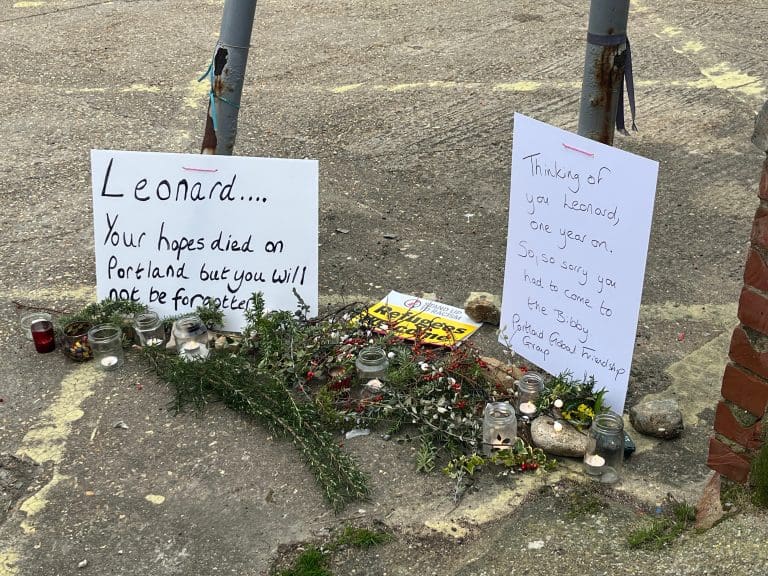 Leonard....
Your hopes died on
Portland but you will
not be forgotten
Thinking of
you Leonard,
one year on.
So, so sorry you
had to come to
the Bibby
Portland Global Friendship
Group
STAND UP
TO RACISM
Refugees